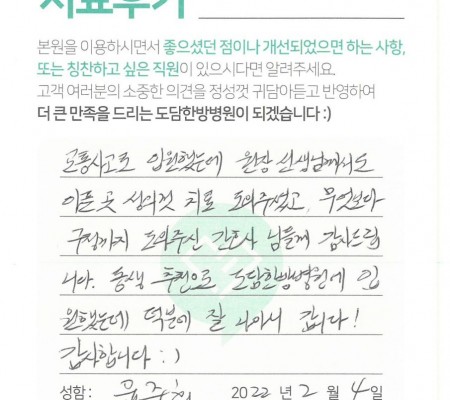 치료후기
본원을 이용하시면서 좋으셨던 점이나 개선되었으면 하는 사항,
또는 칭찬하고 싶은 직원이 있으시다면 알려주세요.
고객 여러분의 소중한 의견을 정성껏 귀담아듣고 반영하여
더 큰 만족을 드리는 도담한방병원이 되겠습니다 :)
교통사고로 입원했는데 원장 선생님께서도
아픈 곳 성의껏 치료 도와주셨고, 무엇보다
구정까지 도와주신 간호사 님들께 감사드립
니다. 동생 추천으로 도담한방병원에 입
원했는데 덕분에 잘 나아서 갑니다!
감사합니다 :)
성함 :
2022 년 2 월 4 일